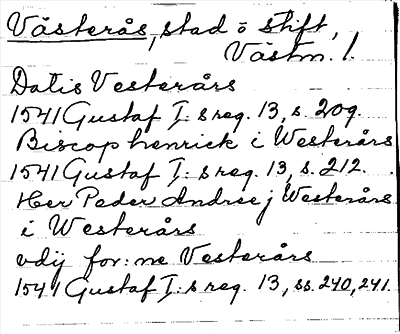 Västerås, stad o stift,
Västm. l.
Datis Vesterårs
1541 Gustaf I:s reg. 13, s. 209.
Biscop henrick i Westerårs
1541 Gustaf I:s reg. 13, s. 212.
Her Peder Andree j Westerårs
i Westerårs
vdij for:ne Vesterårs
1541 Gustaf I:s reg. 13, ss. 240, 241.